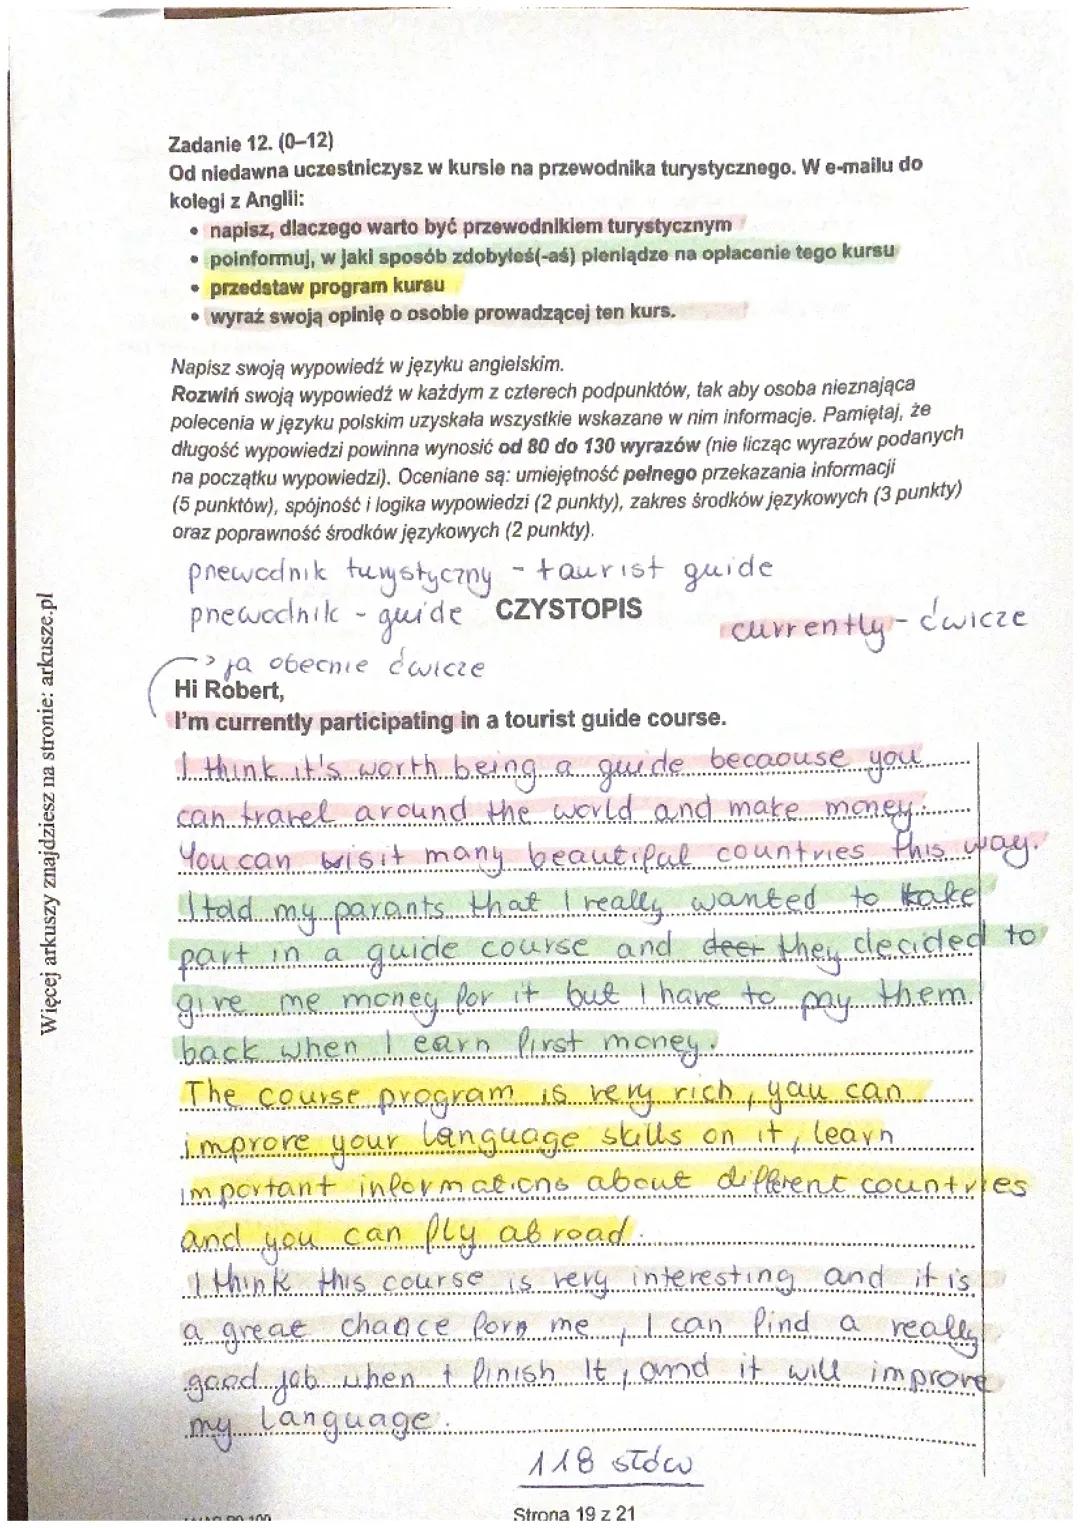 Zadanie 12. (0–12)
Od niedawna uczestniczysz w kursie na przewodnika turystycznego. W e-mailu do
kolegi z Anglii:
• napisz, dlaczego warto być przewodnikiem turystycznym
• poinformuj, w jaki sposób zdobyłeś(-aś) pieniądze na opłacenie tego kursu
• przedstaw program kursu
• wyraź swoją opinię o osobie prowadzącej ten kurs.
Napisz swoją wypowiedź w języku angielskim.
Rozwiń swoją wypowiedź w każdym z czterech podpunktów, tak aby osoba nieznająca
polecenia w języku polskim uzyskała wszystkie wskazane w nim informacje. Pamiętaj, że
długość wypowiedzi powinna wynosić od 80 do 130 wyrazów (nie licząc wyrazów podanych
na początku wypowiedzi). Oceniane są: umiejętność pełnego przekazania informacji
(5 punktów), spójność i logika wypowiedzi (2 punkty), zakres środków językowych (3 punkty)
oraz poprawność środków językowych (2 punkty).
przewodnik turystyczny - taurist guide
przewodnik - guide CZYSTOPIS
currently - ćwicze
ja obecnie ćwicze
Hi Robert,
I'm currently participating in a tourist guide course.
I think it's worth being a guide becaouse you
can travel around the world and make money.
You can visit many beautiful countries this way.
I told my parants that I really wanted to take
part in a guide course and they decided to
give me money for it but I have to pay them
back when I earn first money.
The course program is very rich, you can
improve your language skills on it, learn
important informations about different countries
and you can fly abroad.
I think this course is very interesting and it is
a great chance for me, I can find a really
good job when I finish It, and it will improve
my language.
118 słów
Strona 19 z 21
Więcej arkuszy znajdziesz na stronie: arkusze.pl